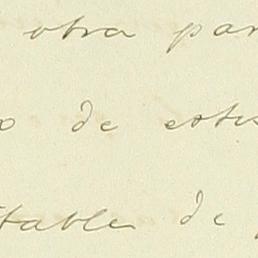 otra par
o de estu
table de